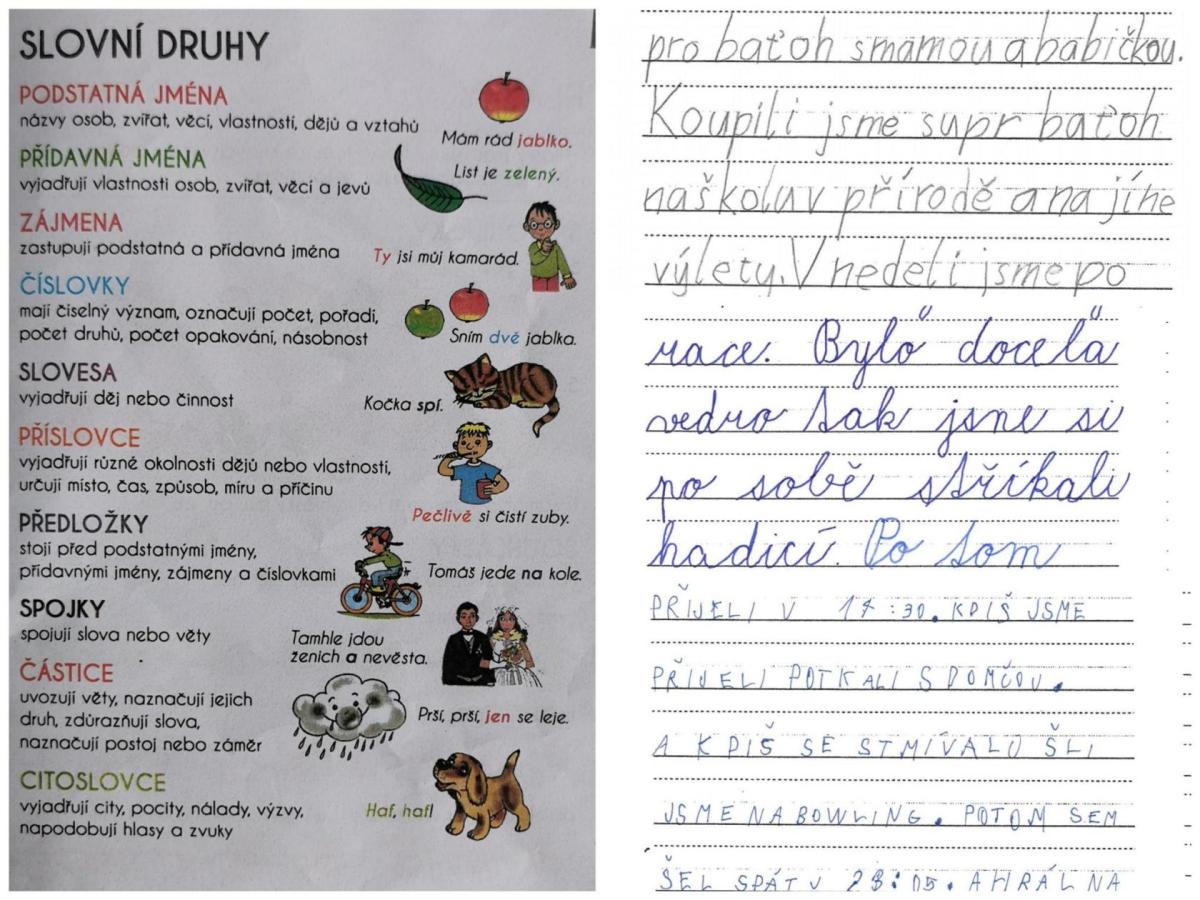 SLOVNÍ DRUHY
PODSTATNÁ JMÉNA
názvy osob, zvířat, věcí, vlastností, dějů a vztahů
Mám rád jablko.
PŘÍDAVNÁ JMÉNA
vyjadřují vlastnosti osob, zvířat, věcí a jevů
List je zelený.
ZÁJMENA
zastupují podstatná a přídavná jména
Ty jsi můj kamarád.
ČÍSLOVKY
mají číselný význam, označují počet, pořadí,
počet druhů, počet opakování, násobnost
Sním dvě jablka.
SLOVESA
vyjadřují děj nebo činnost
Kočka spí.
PŘÍSLOVCE
vyjadřují různé okolnosti dějů nebo vlastností,
určují místo, čas, způsob, míru a příčinu
Pečlivě si čistí zuby.
PŘEDLOŽKY
stojí před podstatnými jmény,
přídavnými jmény, zájmeny a číslovkami
Tomáš jede na kole.
SPOJKY
spojují slova nebo věty
Tamhle jdou
ženich a nevěsta.
ČÁSTICE
uvozují věty, naznačují jejich
druh, zdůrazňují slova,
naznačují postoj nebo záměr
Prší, prší, jen se leje.
CITOSLOVCE
vyjadřují city, pocity, nálady, výzvy,
napodobují hlasy a zvuky
Haf, haf!
pro baťoh smámou a babičkou.
Koupili jsme supr baťoh
naškoluv přírodě ana jíne
výlety. V nedeli jsme po
race. Bylo docela
vedro tak jsne si
po sobě stříkali
hadicí. Po tom
PŘIJELI V 17:30. KDIŠ JSME
PŘIJELI POTKALI S DOMČOU.
A KDIŠ SE STMÍVALO ŠLI
JSME NA BOWLING. POTOM SEM
ŠEL SPÁT V 23:05. A HRÁL NA